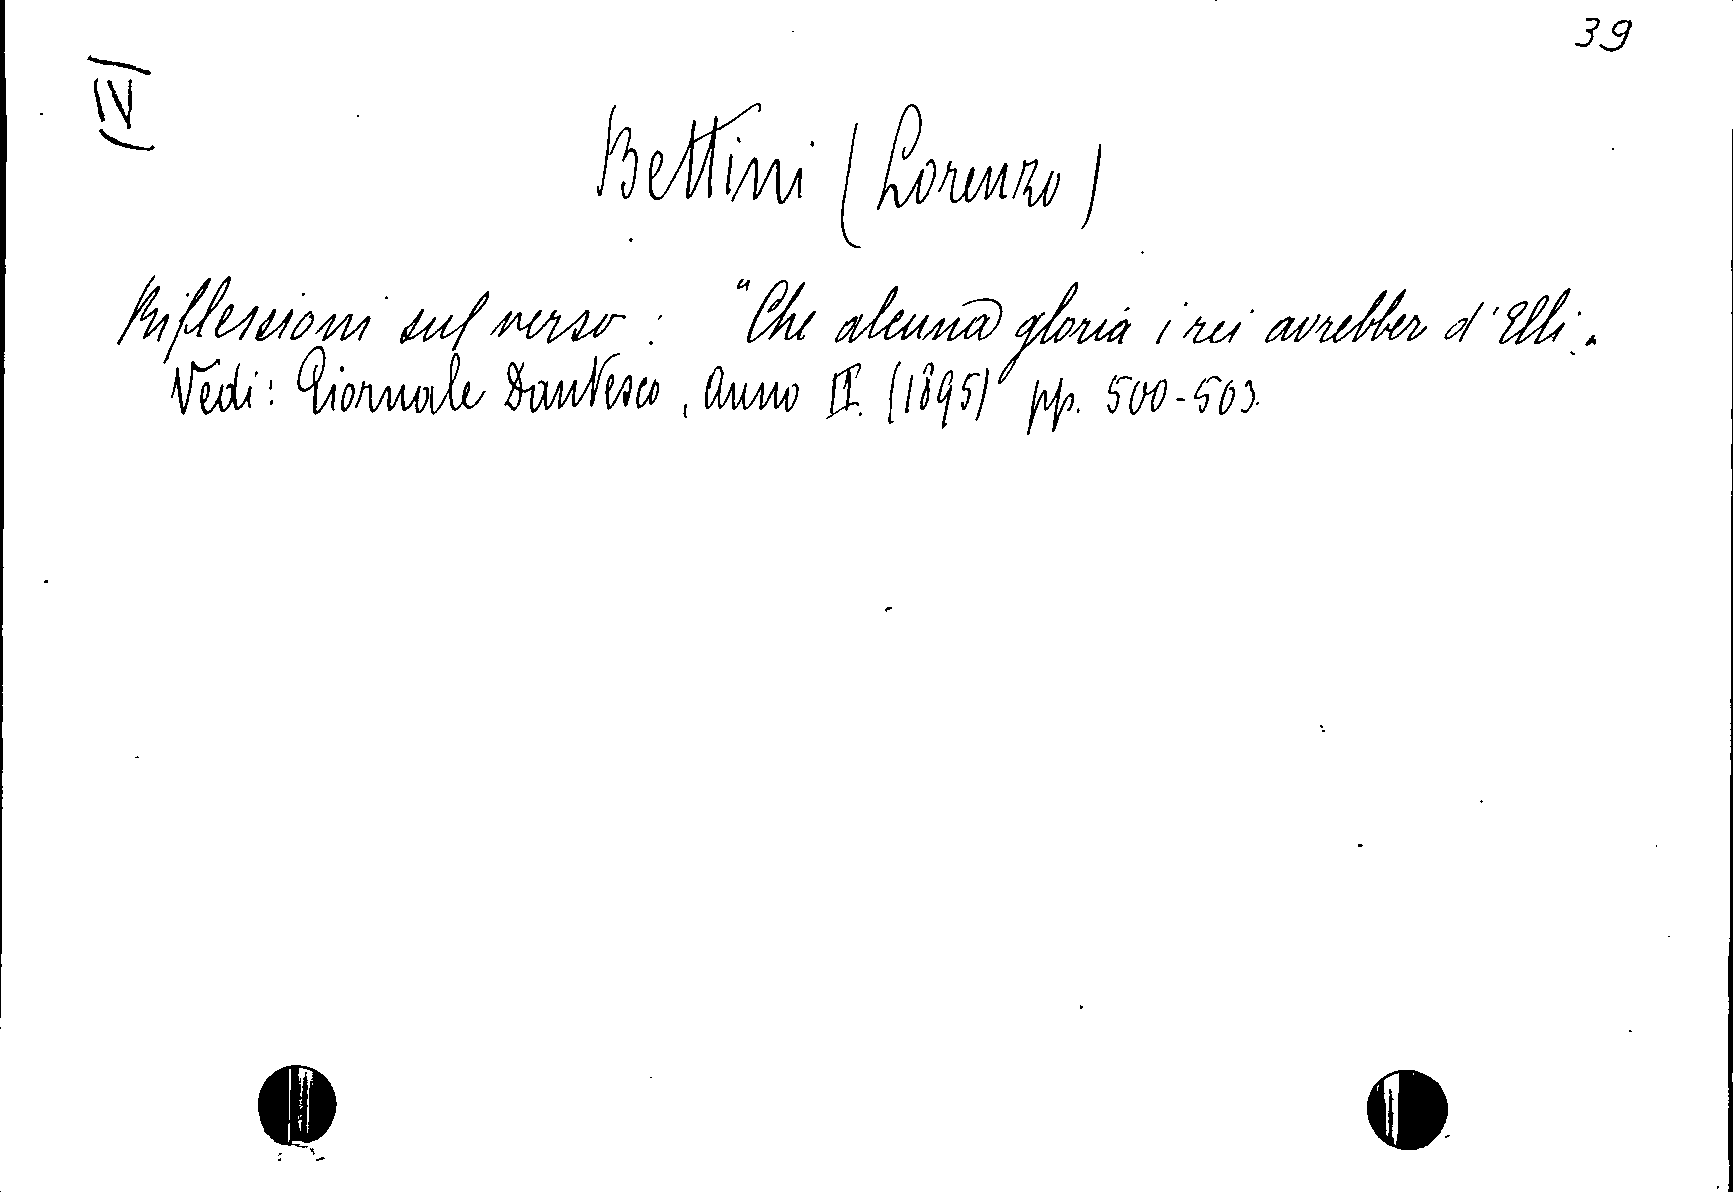 39
(IV)
Bettini (Lorenzo)
Riflessioni sul verso: "Che alcuna gloria i rei avrebber d'Elli."
Vedi: Giornale Dantesco, Anno II. (1895) pp. 500-503.